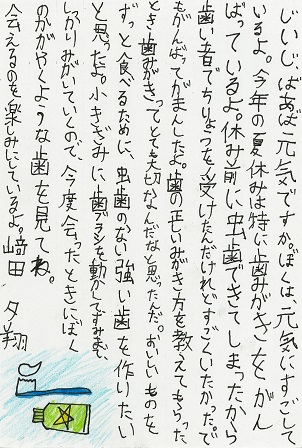 じいじ、ばあば元気ですか。ぼくは元気にすごして
いるよ。今年の夏休みは特に歯みがきをがん
ばっているよ。休み前に虫歯ができてしまったから
歯い者でちりょうを受けたんだけれどすごくいたかった。で
もがんばってがまんしたよ。歯の正しいみがき方を教えてもらった
とき歯みがきってとても大切なんだなと思ったんだ。おいしいものを
ずっと食べるために、虫歯のない強い歯を作りたい
と思ったよ。小きざみに歯ブラシを動かしてすみずみまで、
しっかりみがいていくので、今度会ったときにぼく
のかがやくような歯を見てね。
会えるのを楽しみにしているよ。﨑田 夕翔